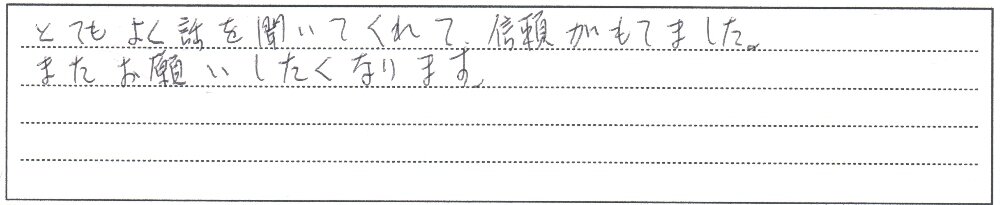 とてもよく話を聞いてくれて、信頼がもてました。
またお願いしたくなります。